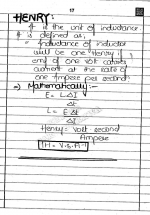 17
HENRY:
It is the unit of inductance
It is defined as,
" Inductance of inductor
will be one Henry if
emf of one volt causes
current at the rate of
one Ampere per second"
=> Mathematically:-
E = L ΔI
Δt
L = E Δt
ΔI
Henry = Volt second
Ampere
H = V.s.A⁻¹